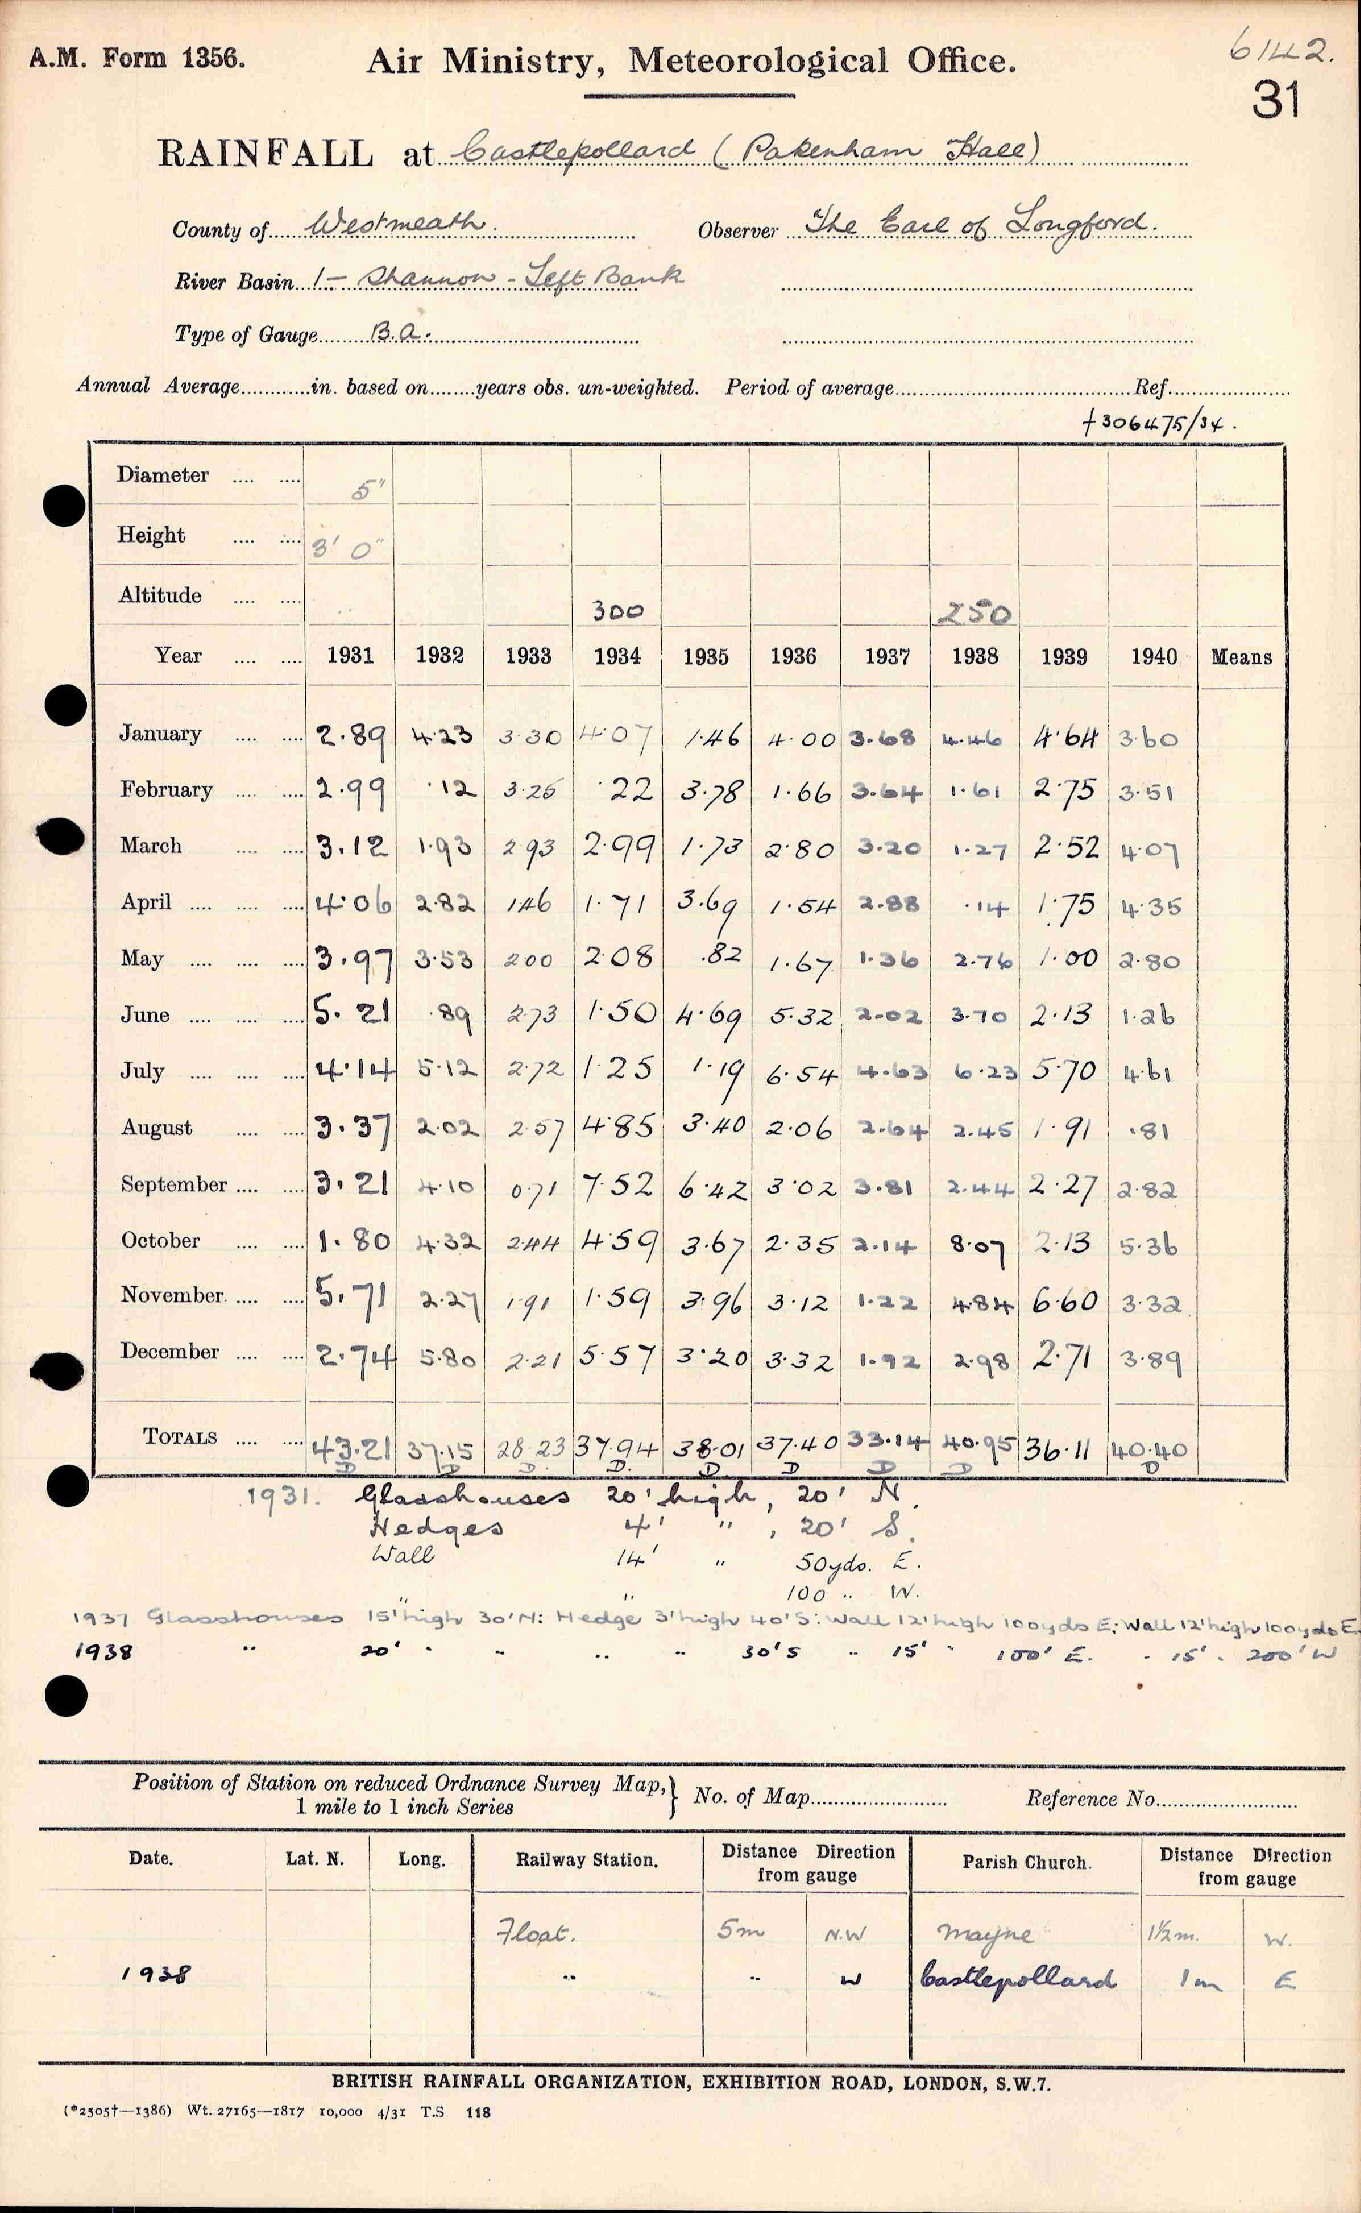 A.M. Form 1356. Air Ministry, Meteorological Office. 6142.
31
RAINFALL at Castlepollard (Pakenham Hall)
County of Westmeath. Observer The Earl of Longford.
River Basin 1 - Shannon - Left Bank
Type of Gauge B.A.
Annual Average in. based on years obs. un-weighted. Period of average Ref.
+306475/34.
Diameter 5"
Height 3' 0"
Altitude 300 250
Year 1931 1932 1933 1934 1935 1936 1937 1938 1939 1940 Means
January 2.89 4.23 3.30 4.07 1.46 4.00 3.68 4.46 4.64 3.60
February 2.99 .12 3.25 .22 3.78 1.66 3.64 1.61 2.75 3.51
March 3.12 1.93 2.93 2.99 1.73 2.80 3.20 1.27 2.52 4.07
April 4.06 2.82 1.46 1.71 3.69 1.54 2.88 .14 1.75 4.35
May 3.97 3.53 2.00 2.08 .82 1.67 1.36 2.76 1.00 2.80
June 5.21 .89 2.73 1.50 4.69 5.32 2.02 3.70 2.13 1.26
July 4.14 5.12 2.72 1.25 1.19 6.54 4.63 6.23 5.70 4.61
August 3.37 2.02 2.57 4.85 3.40 2.06 2.64 2.45 1.91 .81
September 3.21 4.10 0.71 7.52 6.42 3.02 3.81 2.44 2.27 2.82
October 1.80 4.32 2.44 4.59 3.67 2.35 2.14 8.07 2.13 5.36
November 5.71 2.27 1.91 1.59 3.96 3.12 1.22 4.84 6.60 3.32
December 2.74 5.80 2.21 5.57 3.20 3.32 1.92 2.98 2.71 3.89
TOTALS 43.21 37.15 28.23 37.94 38.01 37.40 33.14 40.95 36.11 40.40
D D D. D. D D D D D
1931. Glasshouses 20' high, 20' N.
Hedges 4' " , 20' S.
Wall 14' " 50yds. E.
" " 100 " W.
1937 Glasshouses 15' high 30' N: Hedge 3' high 40' S: Wall 12' high 100yds E; Wall 12' high 100yds E.
1938 " 20' " " " " 30' S " 15' " 100' E. " 15' " 200' W
Position of Station on reduced Ordnance Survey Map, } No. of Map Reference No.
1 mile to 1 inch Series
Date. Lat. N. Long. Railway Station. Distance Direction from gauge Parish Church. Distance Direction from gauge
Float. 5m N.W Mayne 1½m. W.
1938 " " W Castlepollard 1m E
BRITISH RAINFALL ORGANIZATION, EXHIBITION ROAD, LONDON, S.W.7.
(*2505†—1386) Wt. 27165—1817 10,000 4/31 T.S 118